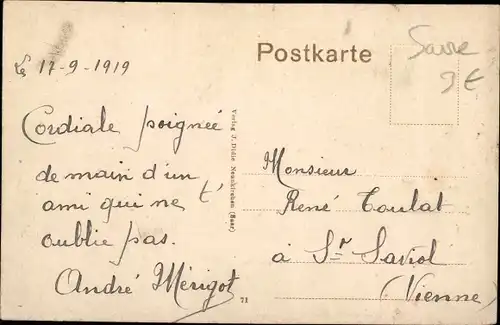 Postkarte
Sarre
9€
Le 17-9-1919
Cordiale poignée
de main d'un
ami qui ne t'
oublie pas.
André Mérigot
Verlag J. Didie Neunkirchen (Saar)
71
Monsieur
René Toulat
à St Saviol
(Vienne)